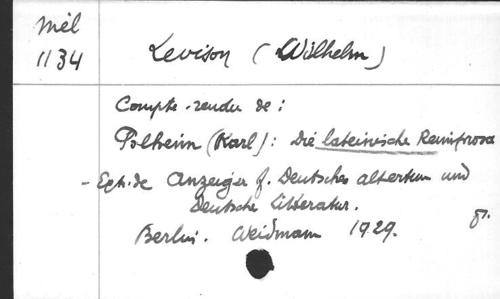 Mél
1134
Levison (Wilhelm)
Compte-rendu de :
Polheim (Karl) : Die lateinische Reimprosa
- Ext. de Anzeiger f. Deutsches altertum und
Deutsche Litteratur.
Berlin. Weidmann 1929.